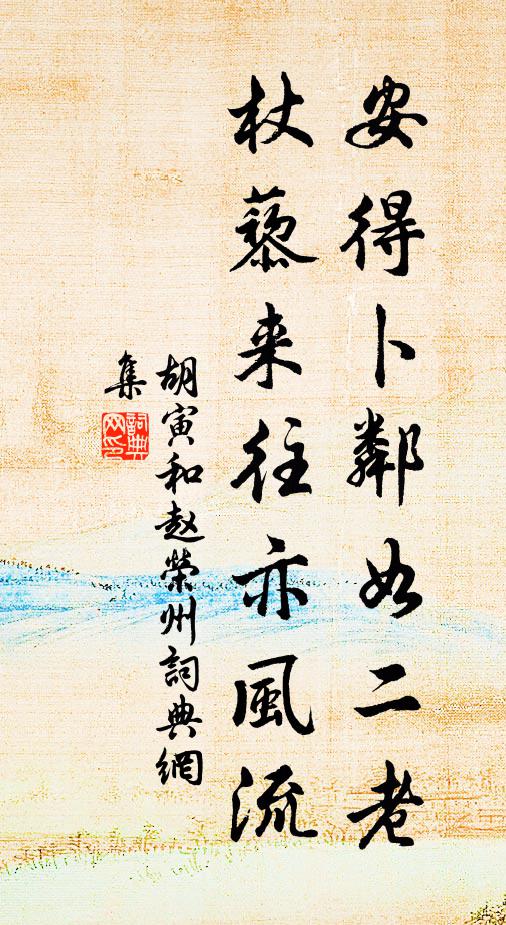 安得卜鄰如二老
杖藜来往亦風流
胡寅和赵榮州詞典網
集
詞典
网印